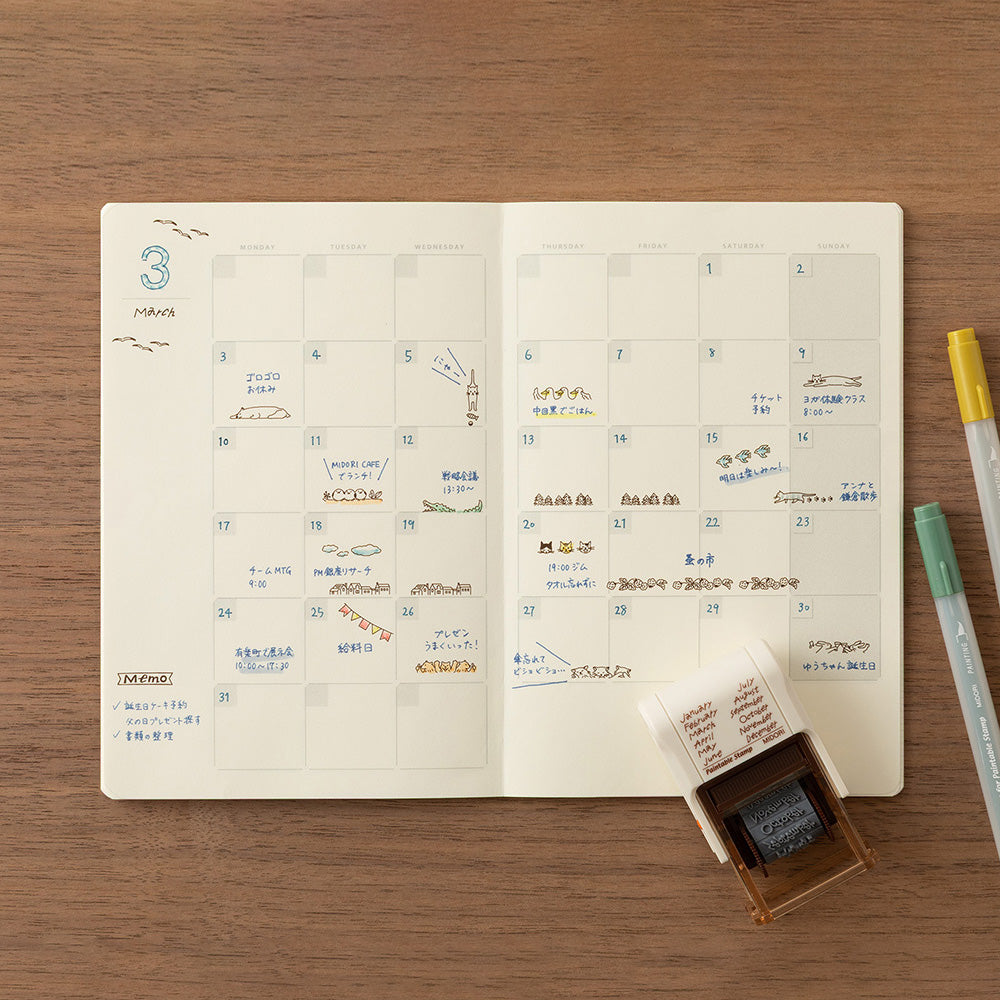 3
March
MONDAY TUESDAY WEDNESDAY THURSDAY FRIDAY SATURDAY SUNDAY
1 2
3 4 5 6 7 8 9
ゴロゴロ
お休み
にゃー
中目黒でごはん
チケット
予約
ヨガ体験クラス
8:00〜
10 11 12 13 14 15 16
MIDORI CAFE
でランチ!
戦略会議
13:30〜
明日は楽しみ〜!
アンナと
鎌倉散歩
17 18 19 20 21 22 23
チームMTG
9:00
PM銀座リサーチ
19:00 ジム
タオル忘れずに
蚤の市
24 25 26 27 28 29 30
有楽町で展示会
10:00〜17:30
給料日
プレゼン
うまくいった!
傘忘れて
ビショビショ…
ゆうちゃん誕生日
31
Memo
✓ 誕生日ケーキ予約
父の日プレゼント探す
✓ 書類の整理
January
February
March
April
May
June
July
August
September
October
November
December
Paintable Stamp MIDORI
November
October
September
for Paintable Stamp MIDORI PAINTING